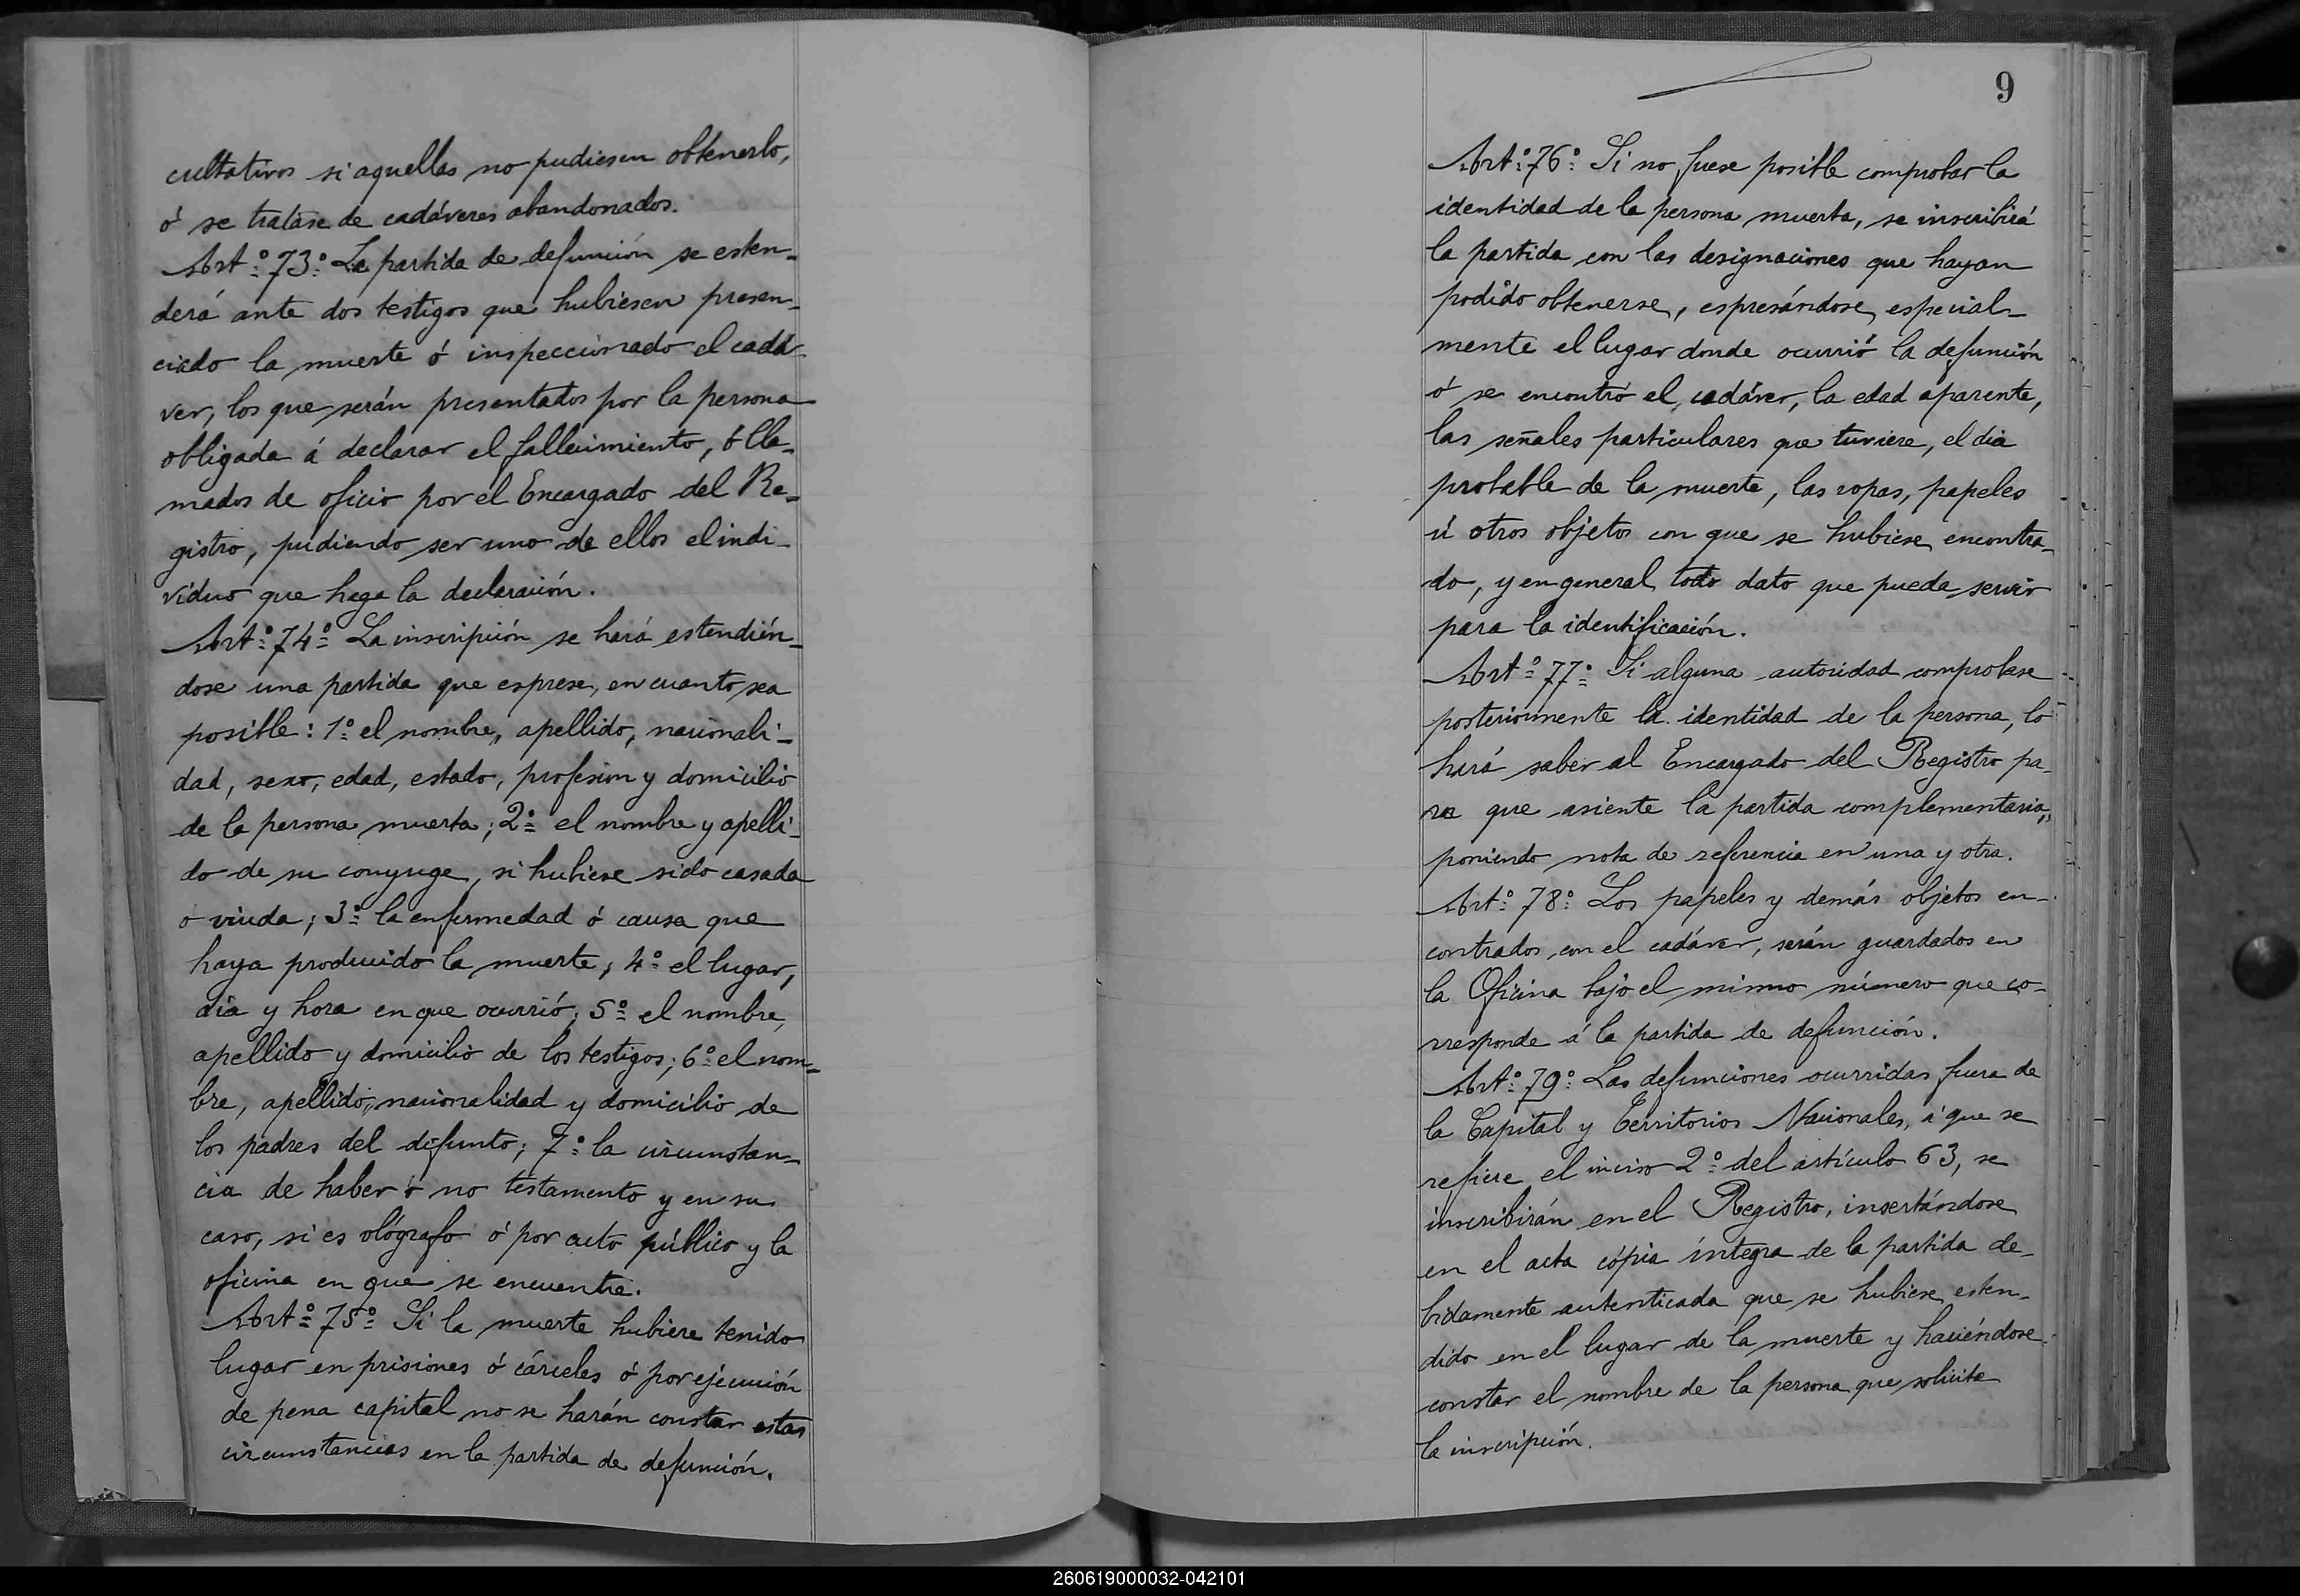 cultativos si aquellas no pudiesen obtenerlo,
ó se tratase de cadáveres abandonados.
Art.º 73.º La partida de defunción se esten-
derá ante dos testigos que hubiesen presen-
ciado la muerte ó inspeccionado el cadá-
ver, los que serán presentados por la persona
obligada á declarar el fallecimiento, ó lla-
mados de oficio por el Encargado del Re-
gistro, pudiendo ser uno de ellos el indi-
viduo que haga la declaración.
Art.º 74.º La inscripción se hará estendién-
dose una partida que esprese, en cuanto sea
posible: 1.º el nombre, apellido, nacionali-
dad, sexo, edad, estado, profesion y domicilio
de la persona muerta; 2.º el nombre y apelli-
do de su conyuge, si hubiese sido casada
o viuda; 3.º la enfermedad ó causa que
haya producido la muerte; 4.º el lugar,
dia y hora en que ocurrió; 5.º el nombre,
apellido y domicilio de los testigos; 6.º el nom-
bre, apellido, nacionalidad y domicilio de
los padres del difunto; 7.º la circunstan-
cia de haber ó no testamento y en su
caso, si es ológrafo ó por acto público y la
oficina en que se encuentre.
Art.º 75.º Si la muerte hubiere tenido
lugar en prisiones ó cárceles ó por ejecución
de pena capital no se harán constar estas
circunstancias en la partida de defunción.
9
Art.º 76.º Si no fuese posible comprobar la
identidad de la persona muerta, se inscribirá
la partida con las designaciones que hayan
podido obtenerse, espresándose, especial-
mente el lugar donde ocurrió la defunción
ó se encontró el cadáver, la edad aparente,
las señales particulares que tuviere, el dia
probable de la muerte, las ropas, papeles
ú otros objetos con que se hubiese encontra-
do, y en general todo dato que pueda servir
para la identificación.
Art.º 77.º Si alguna autoridad comprobase
posteriormente la identidad de la persona, lo
hará saber al Encargado del Registro pa-
ra que asiente la partida complementaria,
poniendo nota de referencia en una y otra.
Art.º 78.º Los papeles y demás objetos en-
contrados con el cadáver, serán guardados en
la Oficina bajo el mismo número que co-
rresponde á la partida de defunción.
Art.º 79.º Las defunciones ocurridas fuera de
la Capital y Territorios Nacionales, á que se
refiere el inciso 2.º del artículo 63, se
inscribirán en el Registro, insertándose
en el acta cópia íntegra de la partida de-
bidamente autenticada que se hubiese esten-
dido en el lugar de la muerte y haciéndose
constar el nombre de la persona que solicite
la inscripción.
260619000032-042101